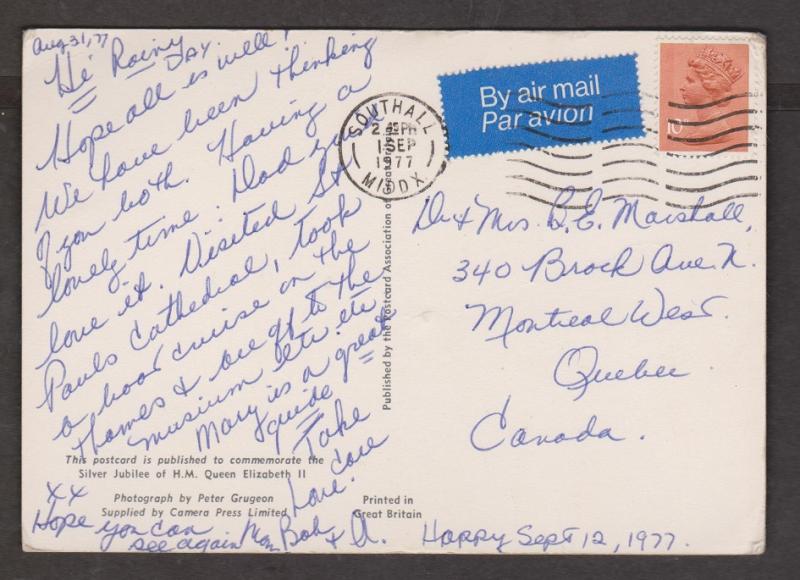 Aug 31, 77
Hi Rainy
DAY
Hope all is well!
We have been thinking
of you both. Having a
lovely time. Dad you'd
love it. Visited St
Pauls Cathedral, took
a boat cruise on the
Thames & are off to the
musium etc. etc
Mary is a great
guide
Take
care
Love.
XX
Hope you can
see again Mom Bob + A.
This postcard is published to commemorate the
Silver Jubilee of H.M. Queen Elizabeth II
Photograph by Peter Grugeon
Supplied by Camera Press Limited
Printed in
Great Britain
Published by the Postcard Association of Great
SOUTHALL
2 45 PM
1 SEP
1977
MIDDX.
By air mail
Par avion
10P
Dr & Mrs. R. E. Marshall,
340 Brock Ave. N.
Montreal West.
Quebec
Canada.
Happy Sept 12, 1977.